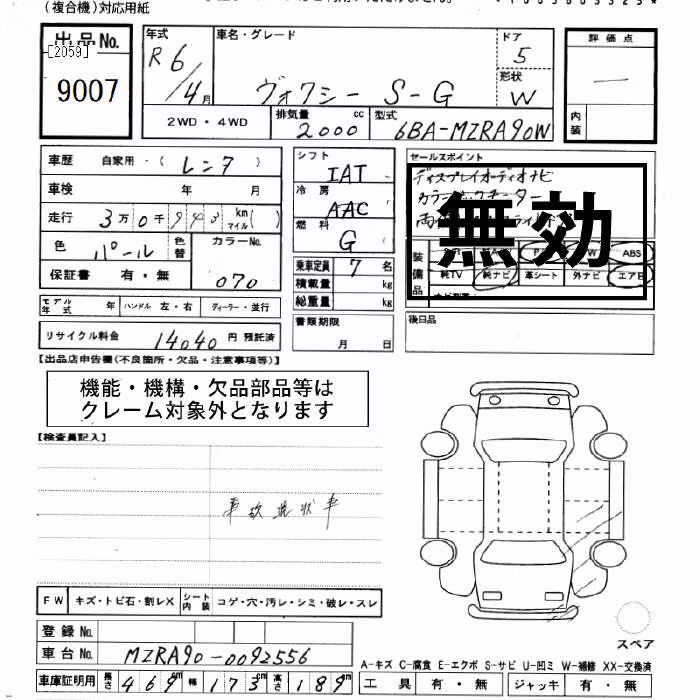 (複合機)対応用紙
出品No.
[2059]
9007
年式
R6/4月
車名・グレード
ヴォクシー S-G
ドア
5
形状
W
評価点
—
内装
2WD・4WD
排気量
2000 cc
型式
6BA-MZRA90W
車歴 自家用・(レンタ)
車検 年 月
走行 3万0千 km マイル( )
色 パール
色替
カラーNo.
070
保証書 有・無
モデル年式 年
ハンドル 左・右
ディーラー・並行
リサイクル料金 14040 円 預託済
シフト
IAT
冷房
AAC
燃料
G
乗車定員 7 名
積載量 kg
総重量 kg
書類期限
月 日
セールスポイント
ディスプレイオーディオナビ
無効
装備品
ABS
純TV 純ナビ 革シート 外ナビ エアB
後日品
【出品店申告欄(不良箇所・欠品・注意事項等)】
機能・機構・欠品部品等は
クレーム対象外となります
【検査員記入】
事故現状車
FW
キズ・トビ石・割レX
シート内装
コゲ・穴・汚レ・シミ・破レ・スレ
登録No.
車台No. MZRA90-0092556
車庫証明用 長さ 469cm 幅 173cm 高さ 189cm
スペア
A-キズ C-腐食 E-エクボ S-サビ U-凹ミ W-補修 XX-交換済
工具 有・無
ジャッキ 有・無